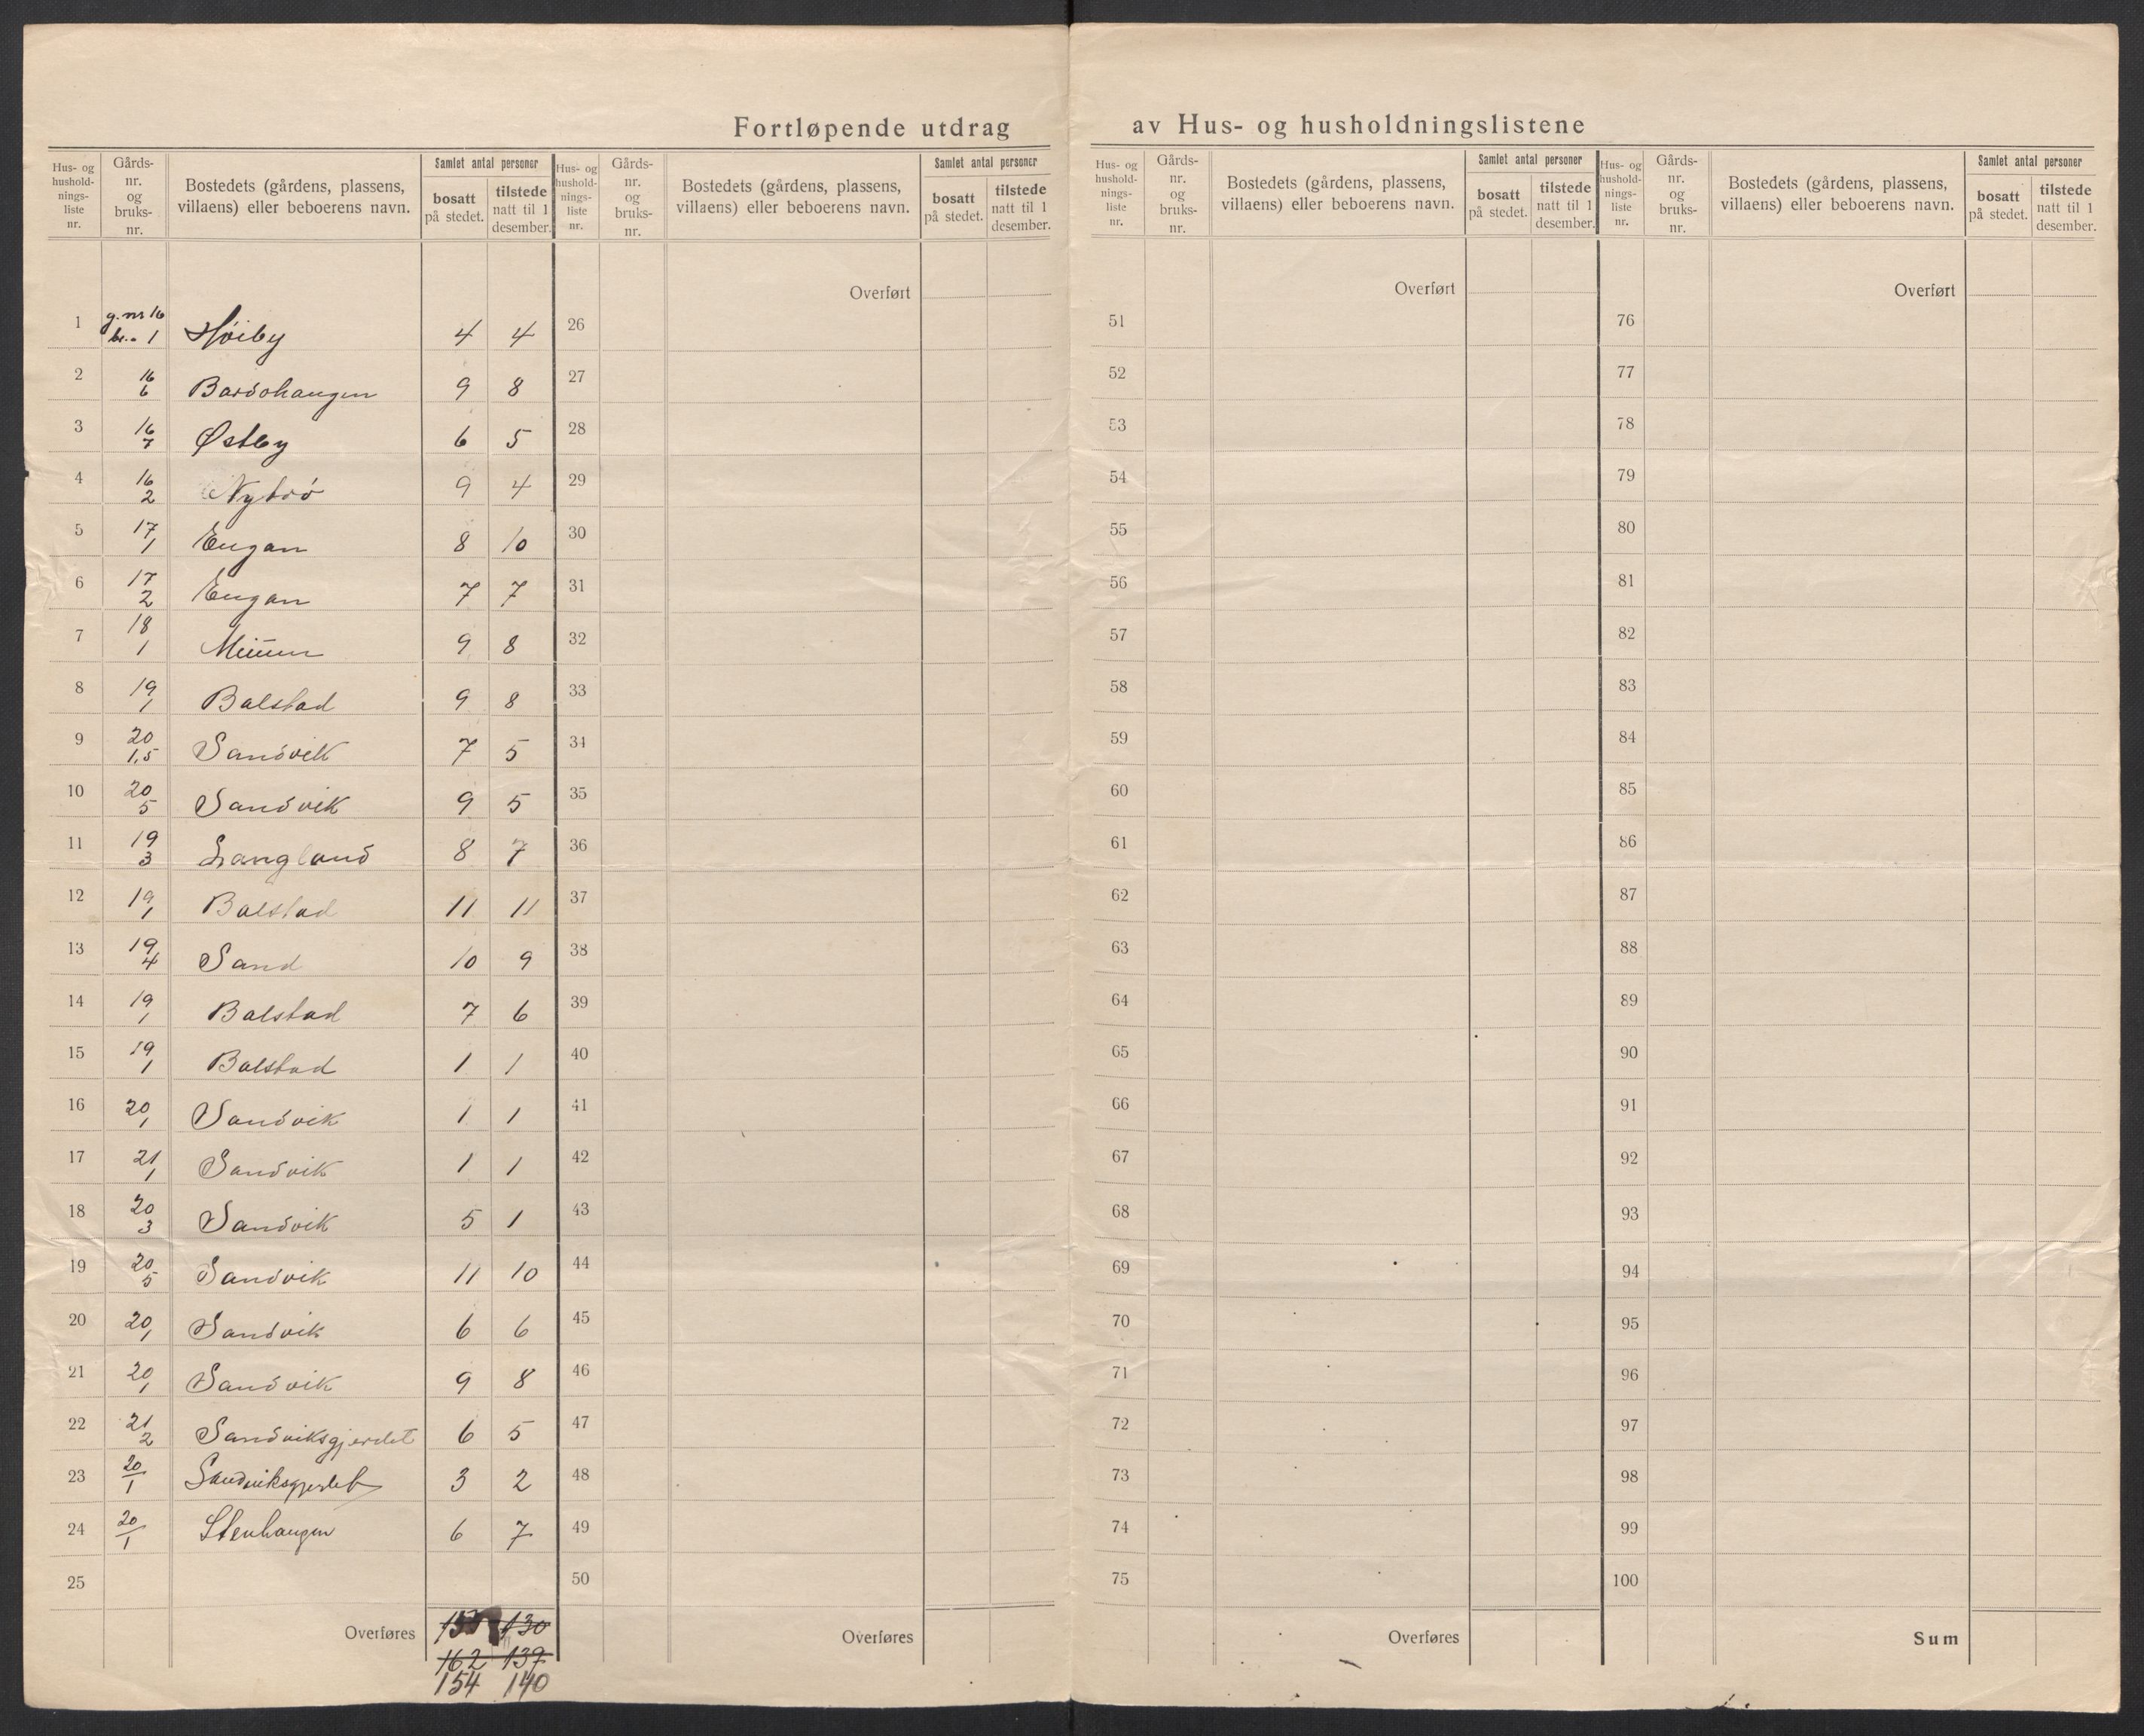 Fortløpende utdrag av Hus- og husholdningslistene
Hus- og hushold-nings-liste nr. Gårds-nr. og bruks-nr. Bostedets (gårdens, plassens, villaens) eller beboerens navn. Samlet antal personer bosatt på stedet. tilstede natt til 1 desember.
Hus- og hushold-nings-liste nr. Gårds-nr. og bruks-nr. Bostedets (gårdens, plassens, villaens) eller beboerens navn. Samlet antal personer bosatt på stedet. tilstede natt til 1 desember.
Hus- og hushold-nings-liste nr. Gårds-nr. og bruks-nr. Bostedets (gårdens, plassens, villaens) eller beboerens navn. Samlet antal personer bosatt på stedet. tilstede natt til 1 desember.
Hus- og hushold-nings-liste nr. Gårds-nr. og bruks-nr. Bostedets (gårdens, plassens, villaens) eller beboerens navn. Samlet antal personer bosatt på stedet. tilstede natt til 1 desember.
1 g.nr 16 br. " 1 Høiby 4 4
2 16 6 Bardohaugen 9 8
3 16 7 Østby 6 5
4 16 2 Nybrø 9 4
5 17 1 Engan 8 10
6 17 2 Engan 7 7
7 18 1 9 8
8 19 1 Balstad 9 8
9 20 1,5 Sandvik 7 5
10 20 5 Sandvik 9 5
11 19 3 Langland 8 7
12 19 1 Balstad 11 11
13 19 4 Sand 10 9
14 19 1 Balstad 7 6
15 19 1 Balstad 1 1
16 20 1 Sandvik 1 1
17 21 1 Sandvik 1 1
18 20 3 Sandvik 5 1
19 20 5 Sandvik 11 10
20 20 1 Sandvik 6 6
21 20 1 Sandvik 9 8
22 21 2 Sandviksgjerdet 6 5
23 20 1 Sandviksgjerdet 3 2
24 20 1 Stenhaugen 6 7
25
Overføres 130
162 139
154 140
Overført
26
27
28
29
30
31
32
33
34
35
36
37
38
39
40
41
42
43
44
45
46
47
48
49
50
Overføres
Overført
51
52
53
54
55
56
57
58
59
60
61
62
63
64
65
66
67
68
69
70
71
72
73
74
75
Overføres
Overført
76
77
78
79
80
81
82
83
84
85
86
87
88
89
90
91
92
93
94
95
96
97
98
99
100
Sum